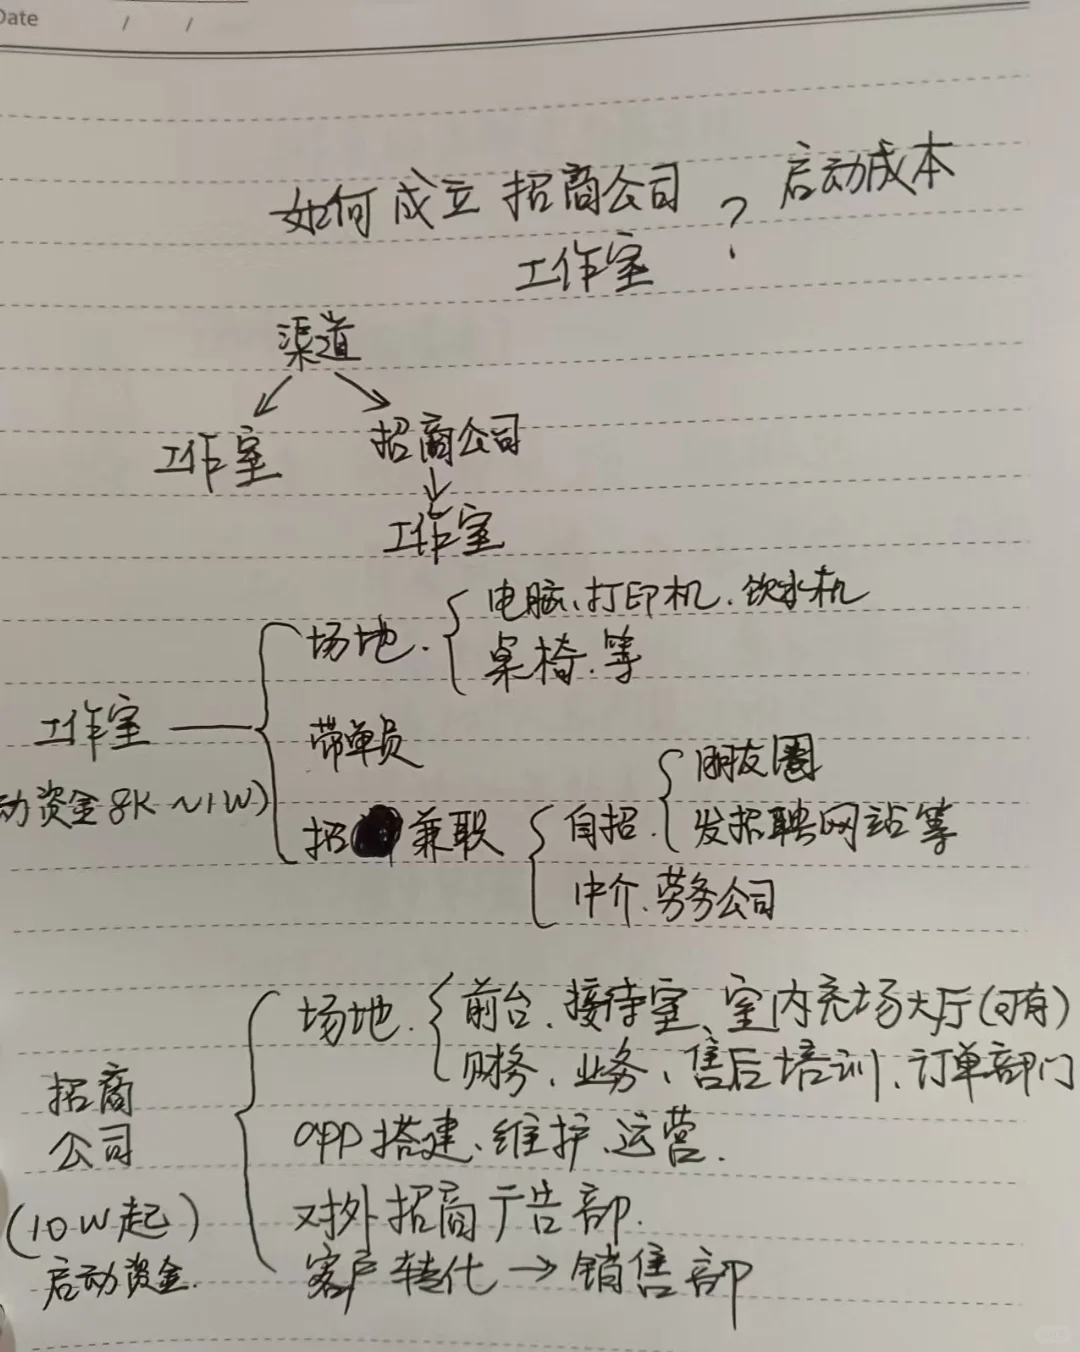 Date / /
如何成立 招商公司 ? 启动成本
工作室
渠道
工作室 招商公司
工作室
场地. 电脑、打印机、饮水机
桌椅、等
工作室
带单员
动资金8K~1W)
招 兼职 自招. 朋友圈
发招聘网站等
中介、劳务公司
场地. 前台、接待室、室内充场大厅(可有)
财务、业务、售后培训、订单部门
招商
公司
app搭建、维护、运营.
(10W起)
对外招商广告部.
启动资金.
客户转化→销售部